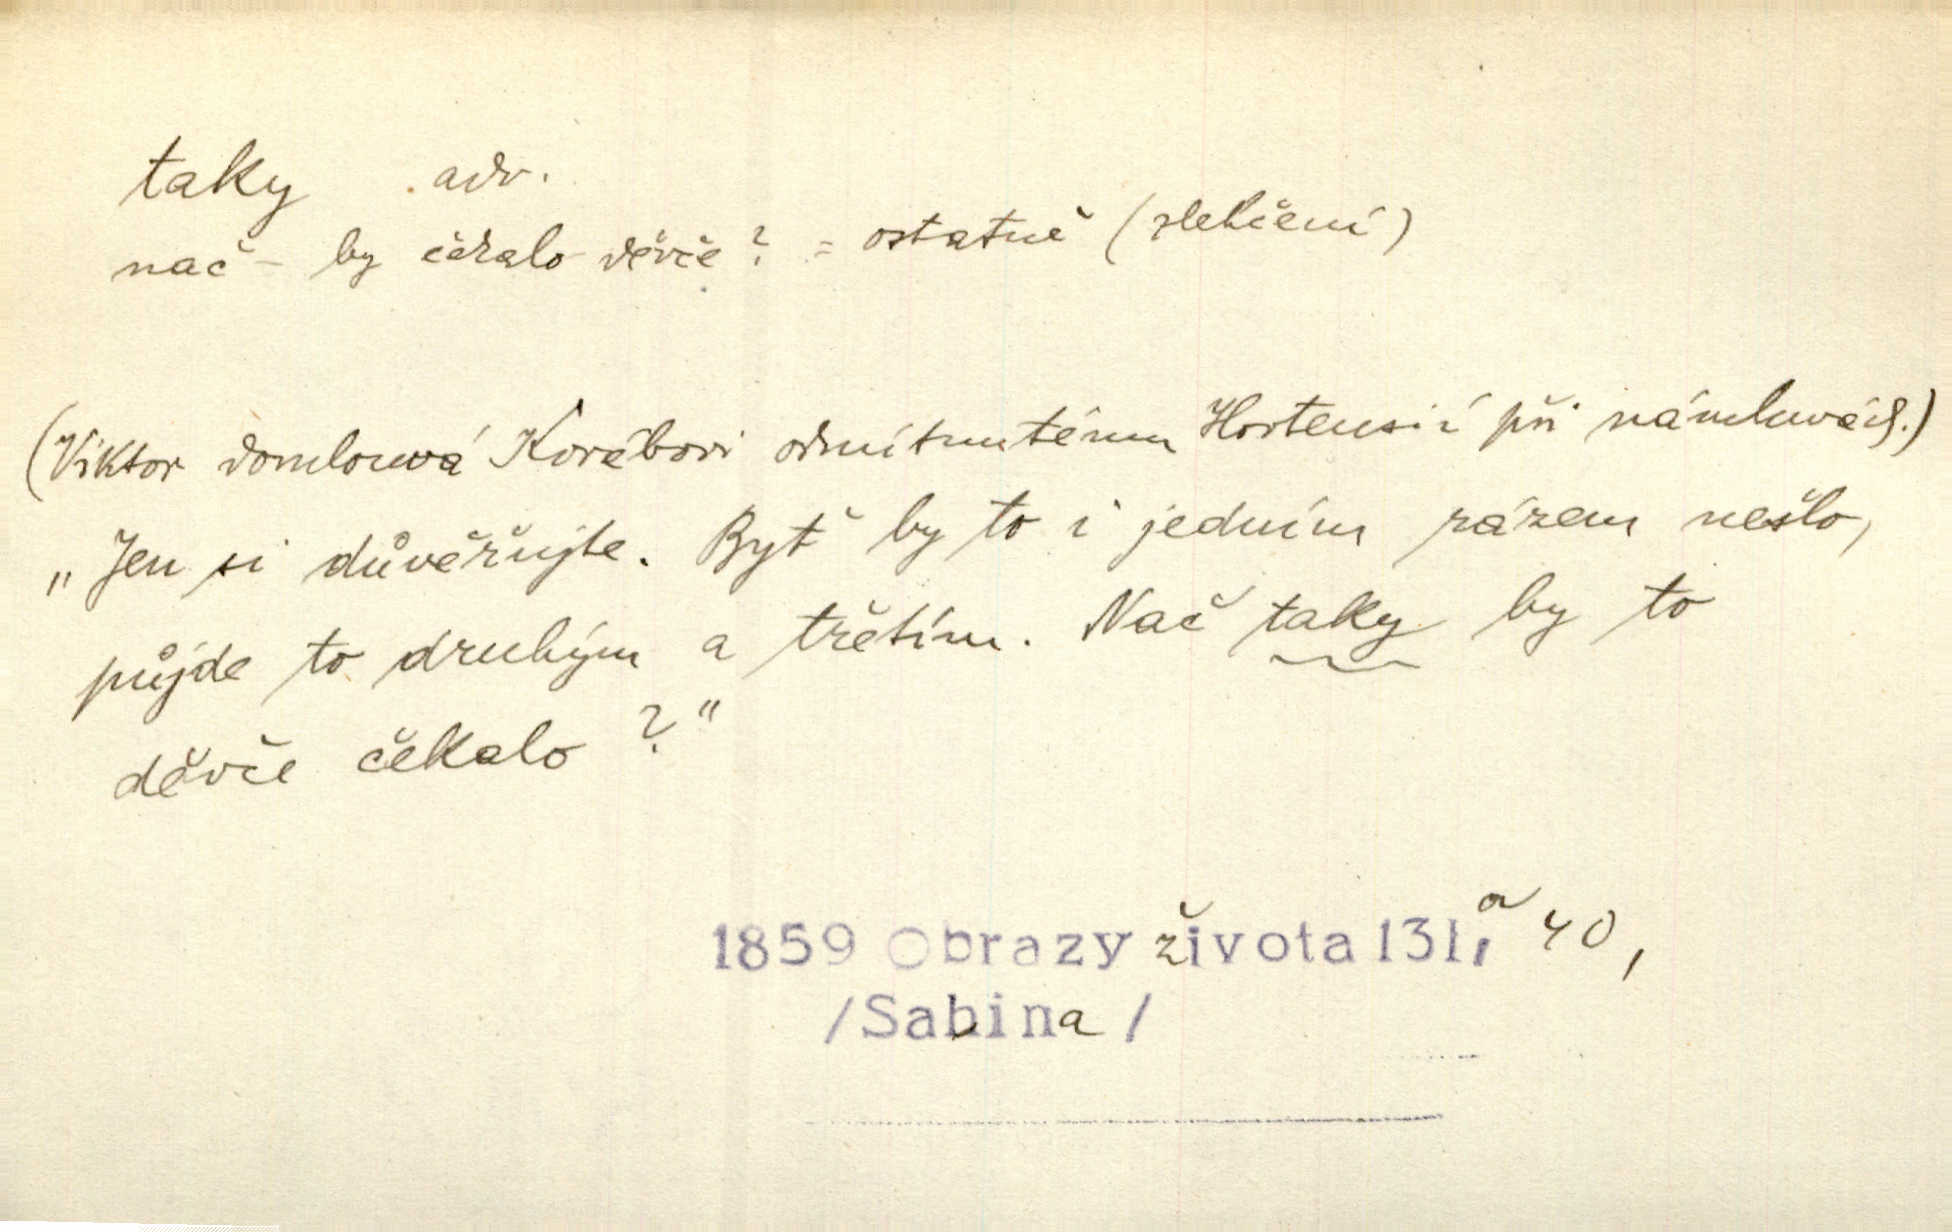 taky adv.
nač – by čekalo děvče? = ostatně (zlehčení)
(Viktor domlouvá Korábovi odmítnutému Hortensií při námluvách.)
„Jen si důvěřujte. Byť by to i jedním rázem nešlo,
půjde to druhým a třetím. Nač taky by to
děvče čekalo?"
1859 Obrazy života 131, a 40,
/Sabina/